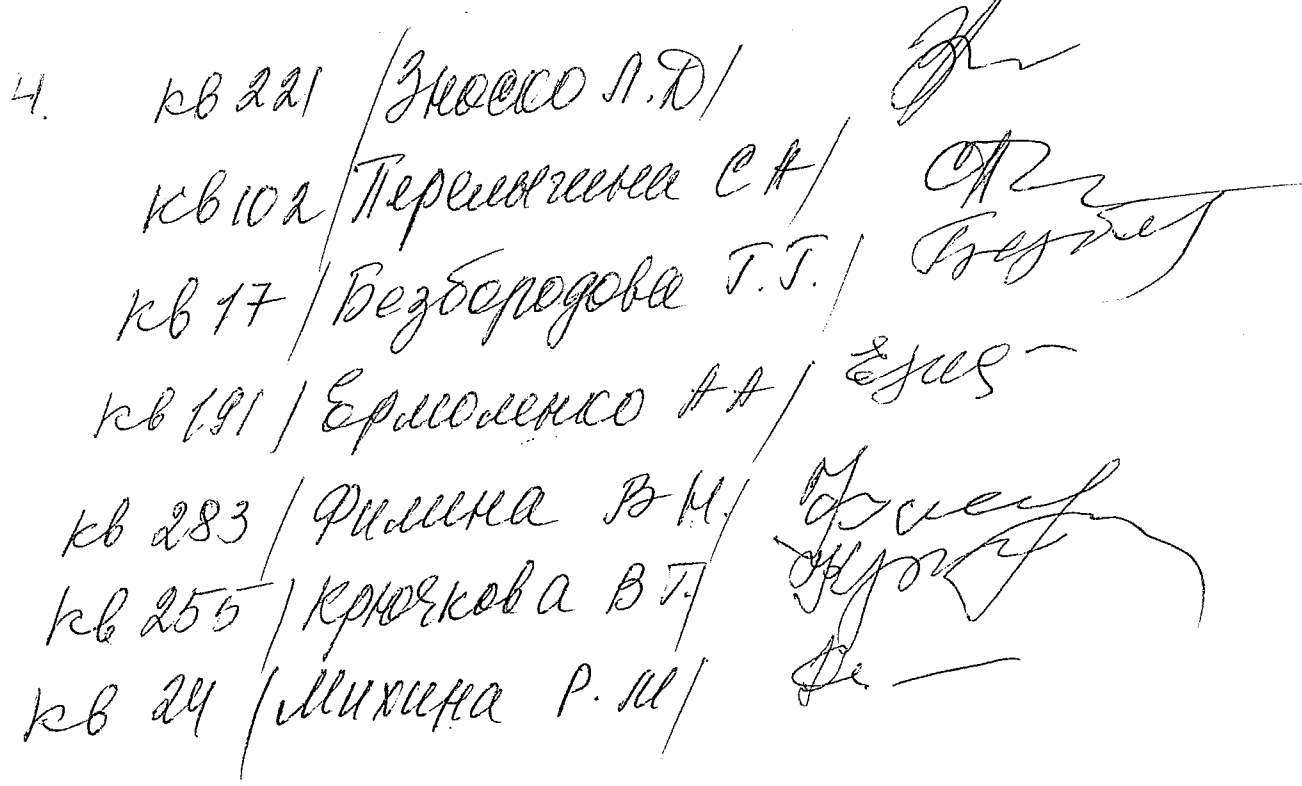 4. кв 221 /Зноско Л.Д/
кв 102 /Перелыгина С А/
кв 17 /Безбородова Т.Т./
кв 191 / Ермоленко А А/
кв 283 / Филина В Н./
кв 255 / Крючкова В Т./
кв 24 / Михина Р. М/